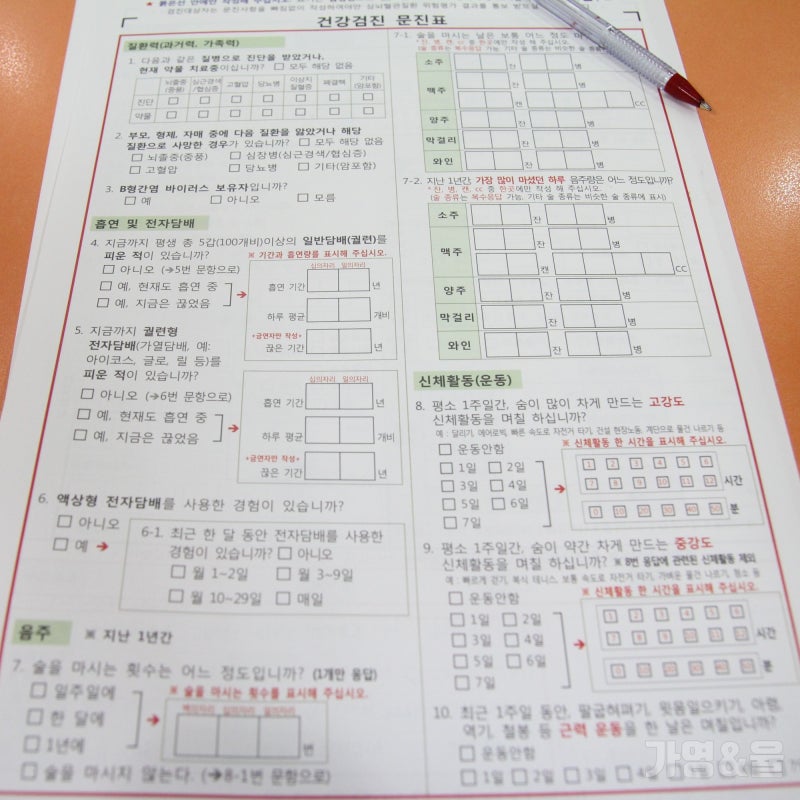 ★ 붉은선 안에만 작성해 주십시오.
검진대상자는 문진사항을 빠짐없이 작성하여야만 심뇌혈관질환 위험평가 결과를 통보 받으실
건강검진 문진표
질환력(과거력, 가족력)
1. 다음과 같은 질병으로 진단을 받았거나,
현재 약물 치료중이십니까? □ 모두 해당 없음
뇌졸중(중풍) 심근경색/협심증 고혈압 당뇨병 이상지질혈증 폐결핵 기타(암포함)
진단 □ □ □ □ □ □ □
약물 □ □ □ □ □ □ □
2. 부모, 형제, 자매 중에 다음 질환을 앓았거나 해당
질환으로 사망한 경우가 있습니까? □ 모두 해당 없음
□ 뇌졸중(중풍) □ 심장병(심근경색/협심증)
□ 고혈압 □ 당뇨병 □ 기타(암포함)
3. B형간염 바이러스 보유자입니까?
□ 예 □ 아니오 □ 모름
흡연 및 전자담배
4. 지금까지 평생 총 5갑(100개비)이상의 일반담배(궐련)를
피운 적이 있습니까? ※ 기간과 흡연량을 표시해 주십시오.
□ 아니오 (→5번 문항으로)
□ 예, 현재도 흡연 중
□ 예, 지금은 끊었음
➔
십의자리 일의자리
흡연 기간 년
하루 평균 개비
*금연자만 작성*
끊은 기간 년
5. 지금까지 궐련형
전자담배(가열담배, 예:
아이코스, 글로, 릴 등)를
피운 적이 있습니까?
□ 아니오 (→6번 문항으로)
□ 예, 현재도 흡연 중
□ 예, 지금은 끊었음
➔
십의자리 일의자리
흡연 기간 년
하루 평균 개비
*금연자만 작성*
끊은 기간 년
6. 액상형 전자담배를 사용한 경험이 있습니까?
□ 아니오
□ 예 ➔
6-1. 최근 한 달 동안 전자담배를 사용한
경험이 있습니까? □ 아니오
□ 월 1~2일 □ 월 3~9일
□ 월 10~29일 □ 매일
음주 ※ 지난 1년간
7. 술을 마시는 횟수는 어느 정도입니까? (1개만 응답)
□ 일주일에
□ 한 달에
□ 1년에
➔
※ 술을 마시는 횟수를 표시해 주십시오.
백의자리 십의자리 일의자리
번
□ 술을 마시지 않는다. (→8-1번 문항으로)
7-1. 술을 마시는 날은 보통 어느 정도 마
*잔, 병, 캔, cc 중 한곳에만 작성해 주십시오.
(술 종류는 복수응답 가능, 기타 술 종류는 비슷한 술 종류에
소주 잔 병
맥주 잔 병
캔 cc
양주 잔 병
막걸리 잔 병
와인 잔 병
7-2. 지난 1년간, 가장 많이 마셨던 하루 음주량은 어느 정도입니까?
*잔, 병, 캔, cc 중 한곳에만 작성해 주십시오.
(술 종류는 복수응답 가능, 기타 술 종류는 비슷한 술 종류에 표시)
소주 잔 병
맥주 잔 병
캔 cc
양주 잔 병
막걸리 잔 병
와인 잔 병
신체활동(운동)
8. 평소 1주일간, 숨이 많이 차게 만드는 고강도
신체활동을 며칠 하십니까?
예 : 달리기, 에어로빅, 빠른 속도로 자전거 타기, 건설 현장노동, 계단으로 물건 나르기 등
□ 운동안함
□ 1일 □ 2일
□ 3일 □ 4일
□ 5일 □ 6일
□ 7일
➔
※ 신체활동 한 시간을 표시해 주십시오.
1 2 3 4 5 6
7 8 9 10 11 12 시간
0 10 20 30 40 50 분
9. 평소 1주일간, 숨이 약간 차게 만드는 중강도
신체활동을 며칠 하십니까? ※ 8번 응답에 관련된 신체활동 제외
예 : 빠르게 걷기, 복식 테니스, 보통 속도로 자전거 타기, 가벼운 물건 나르기, 청소 등
□ 운동안함
□ 1일 □ 2일
□ 3일 □ 4일
□ 5일 □ 6일
□ 7일
➔
※ 신체활동 한 시간을 표시해 주십시오.
1 2 3 4 5 6
7 8 9 10 11 12 시간
0 10 20 30 40 50 분
10. 최근 1주일 동안, 팔굽혀펴기, 윗몸일으키기, 아령,
역기, 철봉 등 근력 운동을 한 날은 며칠입니까?
□ 운동안함
□ 1일 □ 2일 □ 3일 □ 4
가명&을